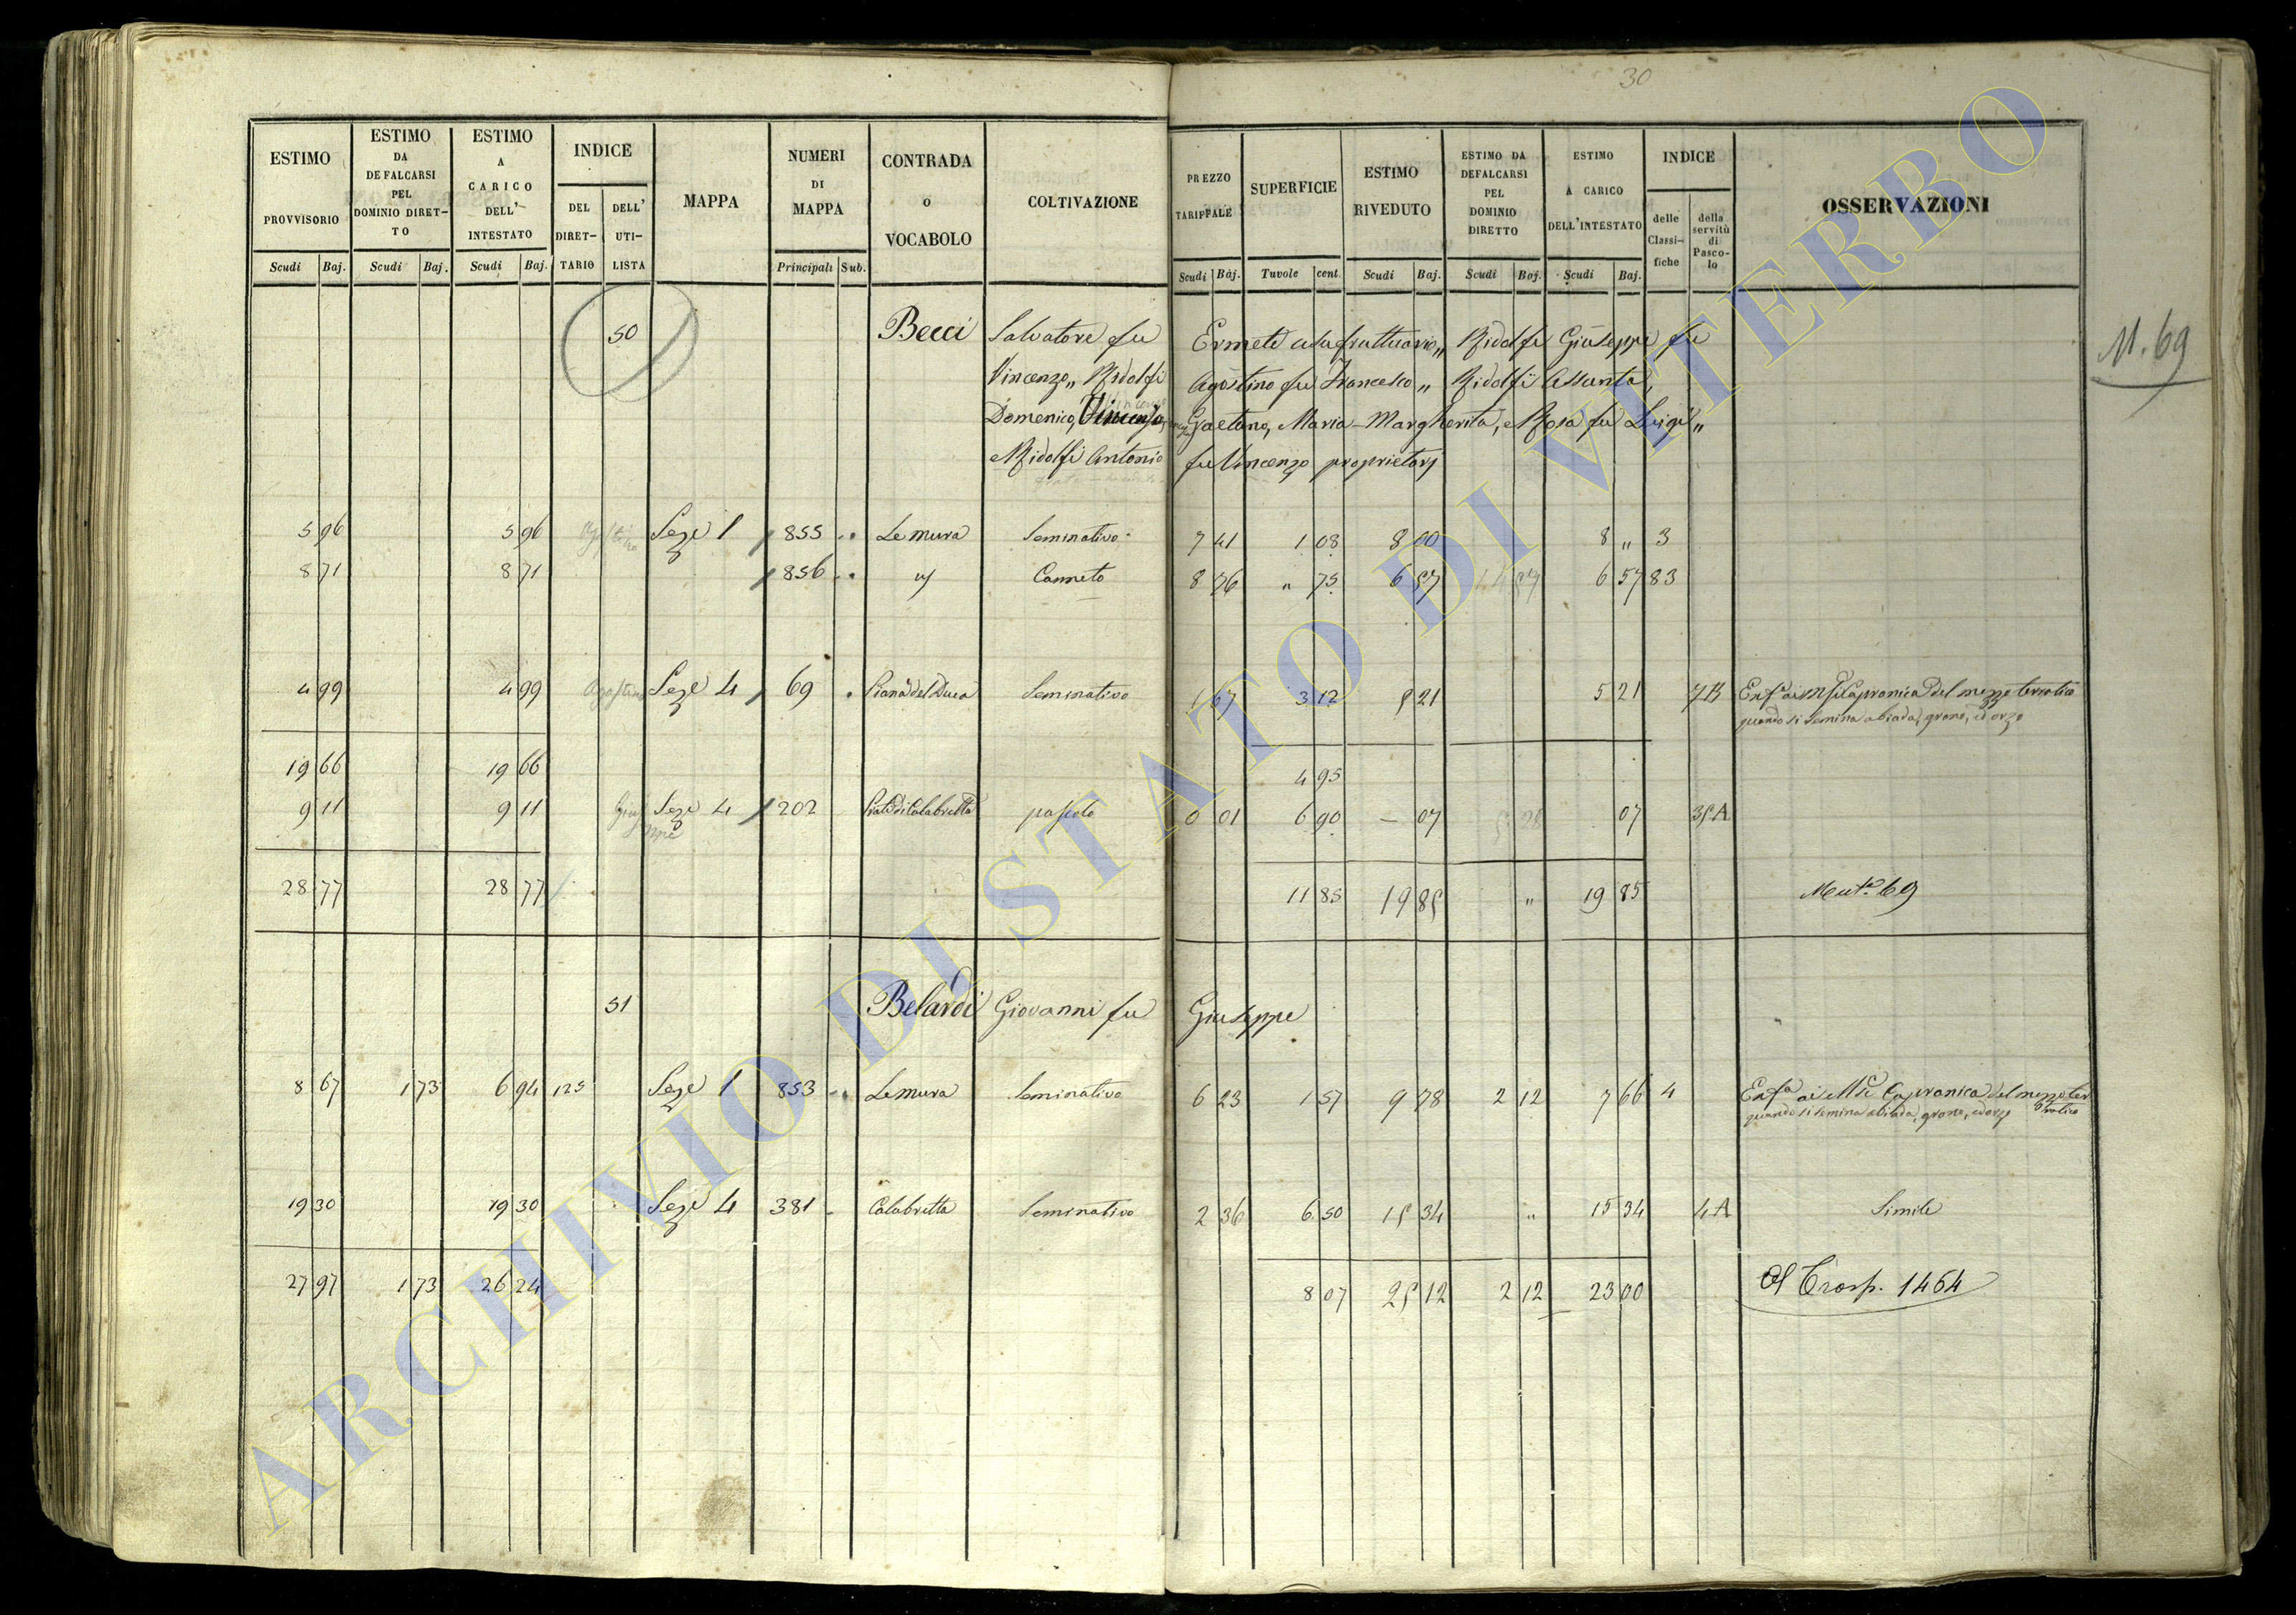 30
ESTIMO PROVVISORIO Scudi Baj.
ESTIMO DA DEFALCARSI PEL DOMINIO DIRET-TO Scudi Baj.
ESTIMO A CARICO DELL' INTESTATO Scudi Baj.
INDICE DEL DIRET-TARIO DELL' UTI-LISTA
MAPPA
NUMERI DI MAPPA Principali Sub.
CONTRADA O VOCABOLO
COLTIVAZIONE
PREZZO TARIFFALE Scudi Baj.
SUPERFICIE Tavole cent.
ESTIMO RIVEDUTO Scudi Baj.
ESTIMO DA DEFALCARSI PEL DOMINIO DIRETTO Scudi Baj.
ESTIMO A CARICO DELL'INTESTATO Scudi Baj.
INDICE delle Classi-fiche della servitù di Pasco-lo
OSSERVAZIONI
50 Becci Salvatore fu Ermete usufruttuario,, Ridolfi Giuseppe fu
N. 69
Vincenzo,, Ridolfi Agostino fu Francesco,, Ridolfi Assunta,
Domenico, Vincenzo, Gaetano, Maria-Margherita, e Rosa fu Luigi,,
e Ridolfi Antonio fu Vincenzo proprietarj
5 96 5 96 Agostino Seze 1 855 Le mura Seminativo 7 41 1 08 8 00 8 " 3
8 71 8 71 856 " Canneto 8 76 " 75 6 57 6 57 83
4 99 4 99 Agostino Seze 4 69 Piana del Duca Seminativo 1 67 3 12 5 21 5 21 7B Enfa ai M Si Capranica del mezzo terratico
quando si semina abiada, grano, ed orzo
19 66 19 66 4 95
9 11 9 11 Giuseppe Seze 4 202 Prato di Calabretta pascolo 0 01 6 90 — 07 07 35A
28 77 28 77 11 85 19 85 " 19 85 Muta 69
51 Belardi Giovanni fu Giuseppe
8 67 1 73 6 94 125 Seze 1 853 Le mura Seminativo 6 23 1 57 9 78 2 12 7 66 4 Enfa ai M Si Capranica del mezzo terratico
quando si semina abiada, grano, ed orzo
19 30 19 30 Seze 4 381 Calabretta Seminativo 2 36 6 50 15 34 " 15 34 4A Simile
27 97 1 73 26 24 8 07 25 12 2 12 23 00 Al Trasp. 1464
ARCHIVIO DI STATO DI VITERBO